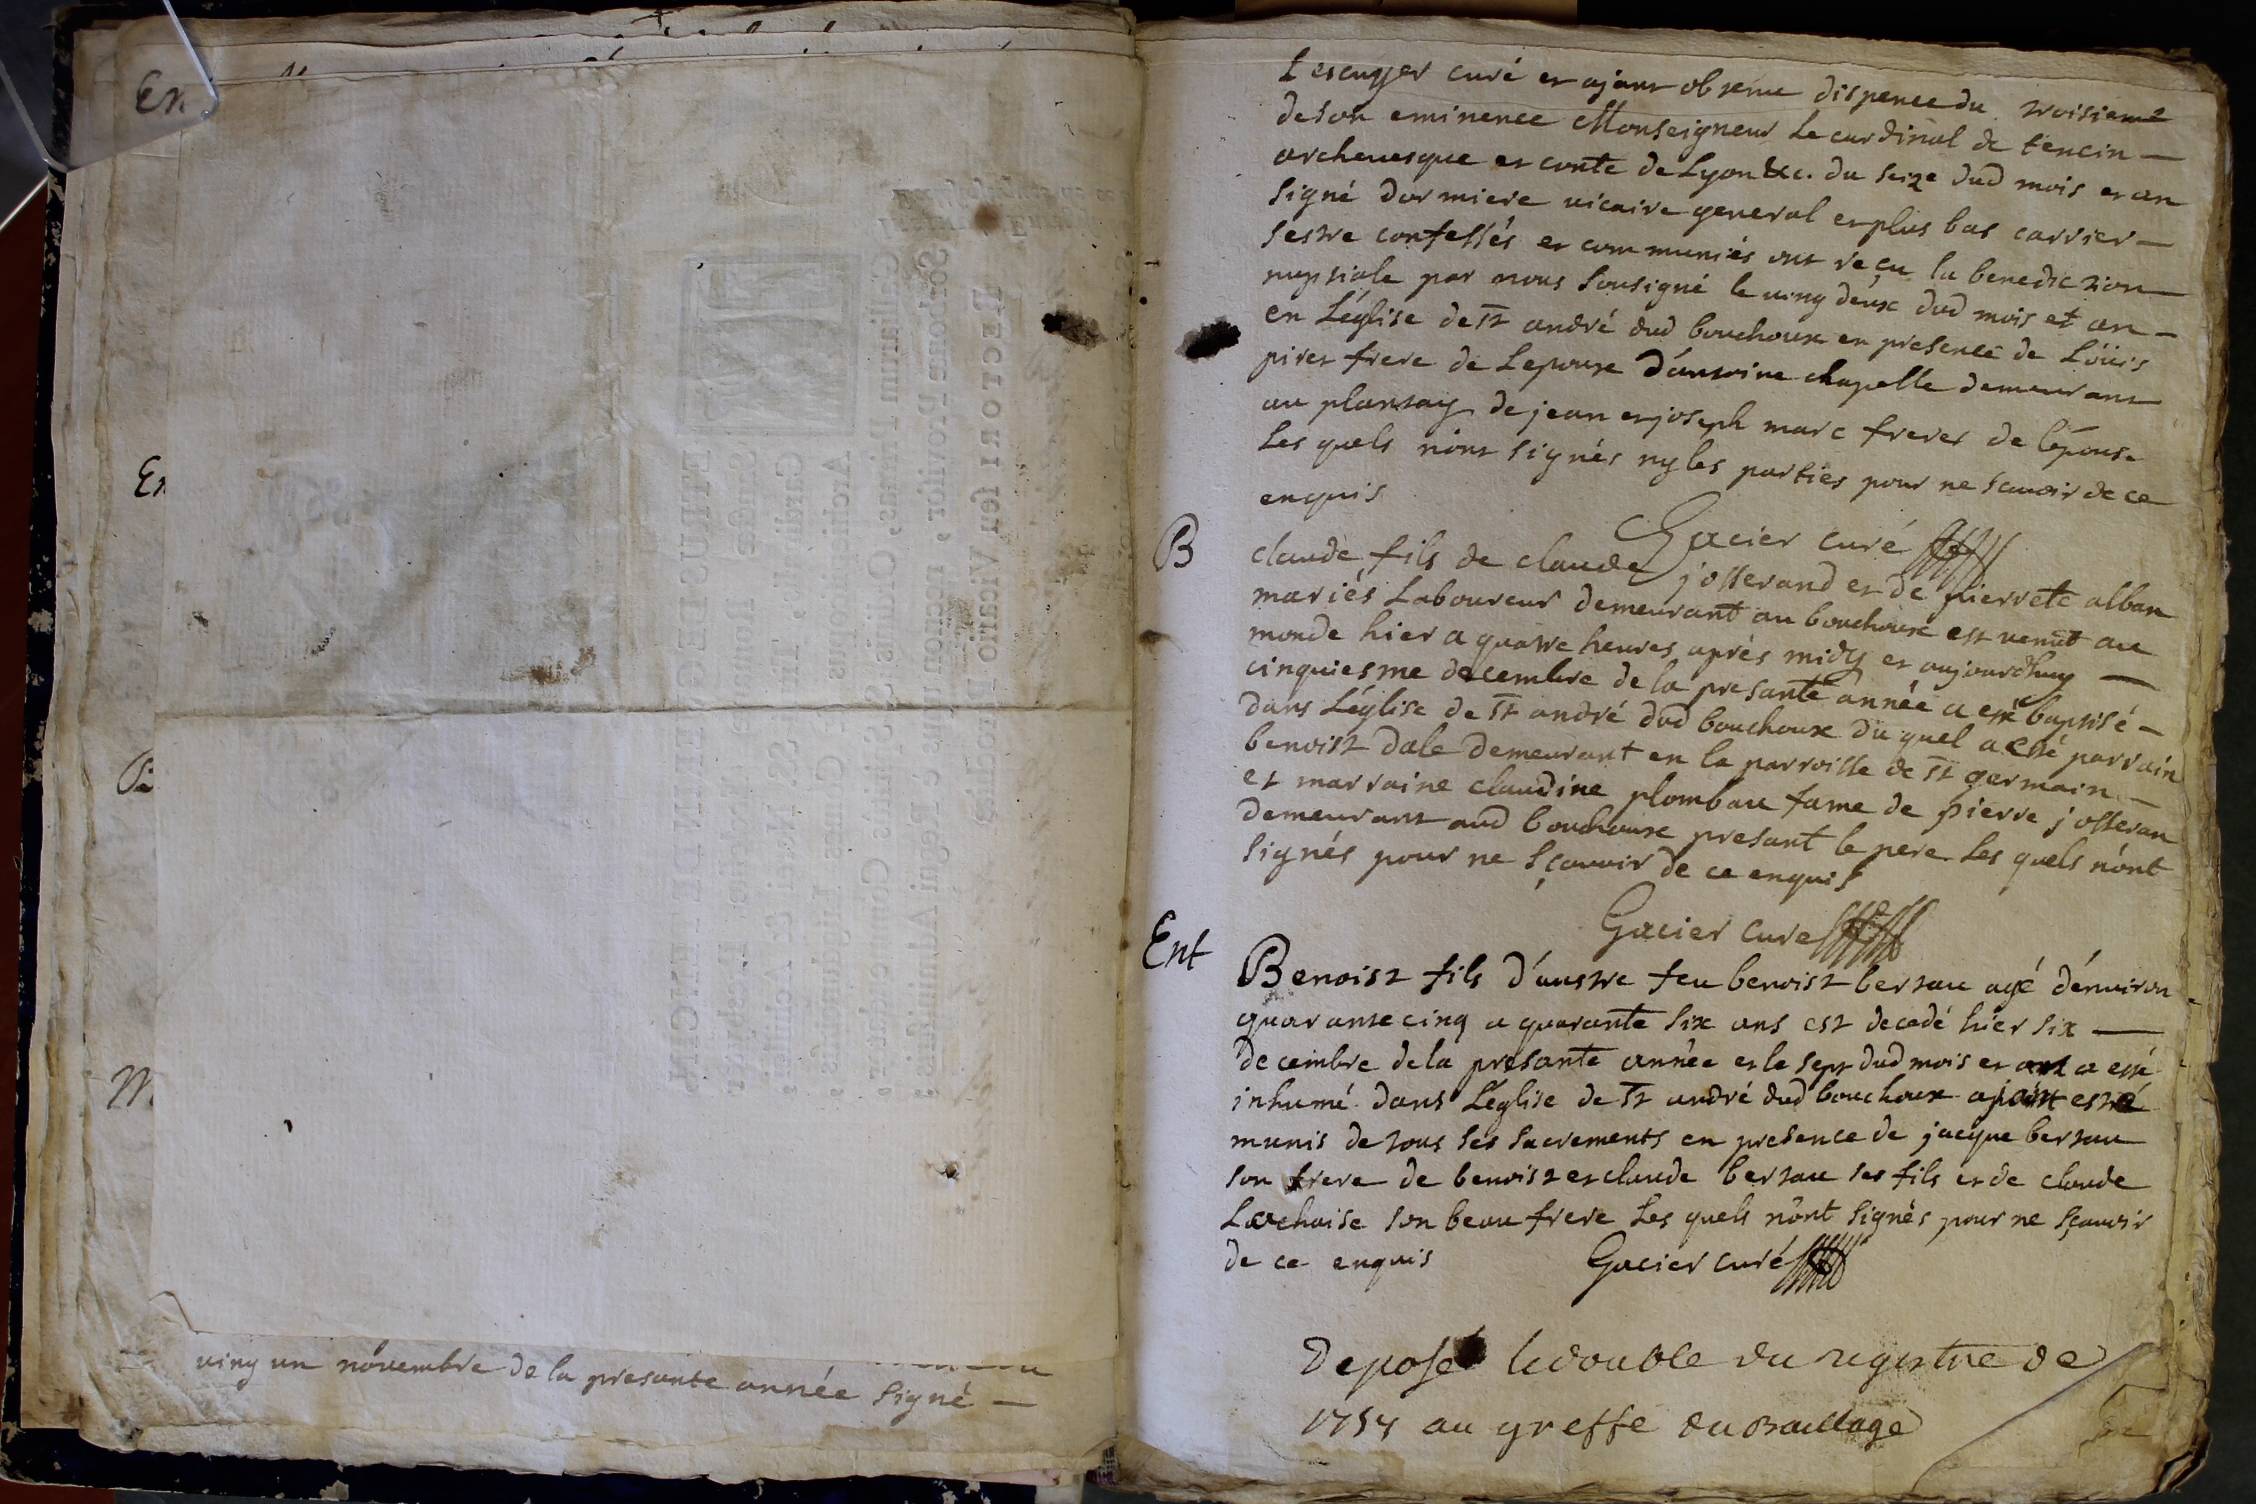 En
En
P
M
ving un novembre de la presante année signé —
Lescuyer curé et ajant obtenu dispence du troisieme
de son eminence Monseigneur Le cardinal de tencin —
archevesque et conte de Lyon &c. du seize dud mois et an
signé dormiere vicaire general et plus bas carrier —
sestre confessés et communiés ont reçu la benediction
nuptiale par nous sousigné le ving deux dud mois et an —
en L'église de St andré dud bouchoux en presence de Loüis
piret frere de Lepoux d'antoine chapelle demeurant
au plantay de jean et joseph marc freres de l'épouse
Les quels n'ont signés ny les parties pour ne scavoir de ce
enquis
Gacier curé
B
claude fils de claude josserand et de pierrete alban
mariés Laboureur demeurant au bouchoux est venut au
monde hier a quatre heures après midy et aujourdhuy —
cinquiesme decembre de la presante année a esté baptisé —
dans L'église de St andré dud bouchoux du quel a esté parrain
benoist dale demeurant en la parroisse de St germain —
et marraine claudine plombau fame de pierre josseran
demeurant aud bouchoux presant le pere Les quels n'ont
signés pour ne sçavoir de ce enquis
Gacier curé
Ent
Benoist fils d'austre feu benoist bertau agé d'environ
quarante cinq a quarante six ans est decedé hier six —
decembre de la presante année et le sept dud mois et an a esté
inhumé dans L'église de St andré dud bouchoux ajant esté
munis de tous ses sacrements en presence de jacque bertau
son frere de benoist et claude bertau ses fils et de claude
Lachaise son beau frere Les quels n'ont signés pour ne sçavoir
de ce enquis Gacier curé
Deposé le double du registre de
1754 au greffe du Baillage